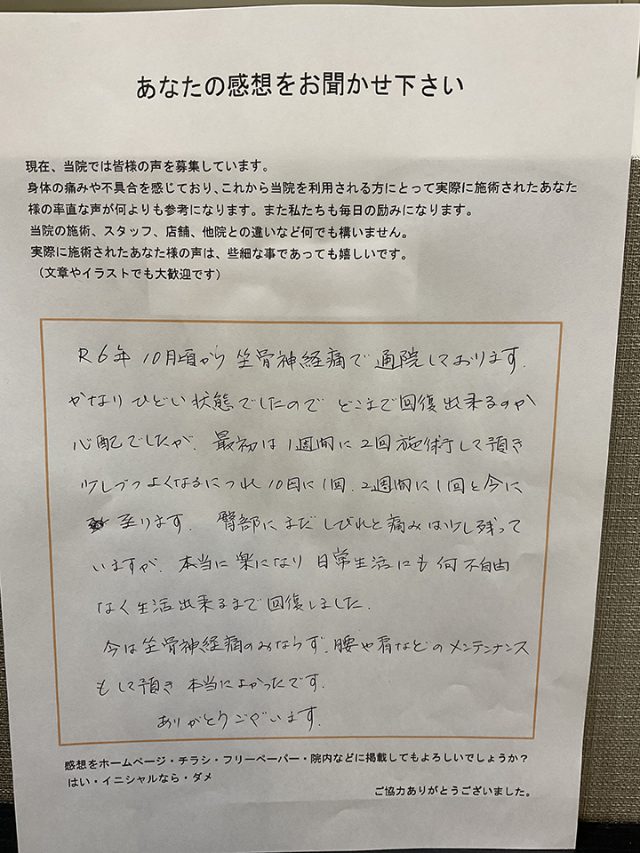 あなたの感想をお聞かせ下さい
現在、当院では皆様の声を募集しています。
身体の痛みや不具合を感じており、これから当院を利用される方にとって実際に施術されたあなた
様の率直な声が何よりも参考になります。また私たちも毎日の励みになります。
当院の施術、スタッフ、店舗、他院との違いなど何でも構いません。
実際に施術されたあなた様の声は、些細な事であっても嬉しいです。
（文章やイラストでも大歓迎です）
R6年10月頃から坐骨神経痛で通院しております。
かなりひどい状態でしたのでどこまで回復出来るのか
心配でしたが、最初は1週間に2回施術して頂き
少しづつよくなるにつれ10日に1回、2週間に1回と今に
至ります。臀部にまだしびれと痛みは少し残って
いますが、本当に楽になり日常生活にも何不自由
なく生活出来るまで回復しました。
今は坐骨神経痛のみならず、腰や肩などのメンテンナンス
もして頂き本当によかったです。
ありがとうございます。
感想をホームページ・チラシ・フリーペーパー・院内などに掲載してもよろしいでしょうか？
はい・イニシャルなら・ダメ
ご協力ありがとうございました。